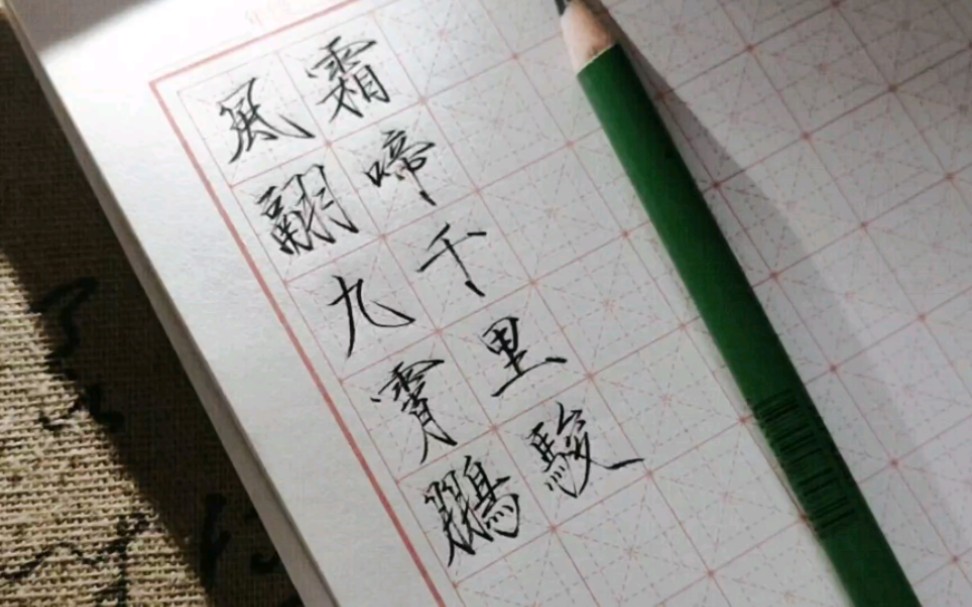 霜啼千里駿
風翮九霄鵬